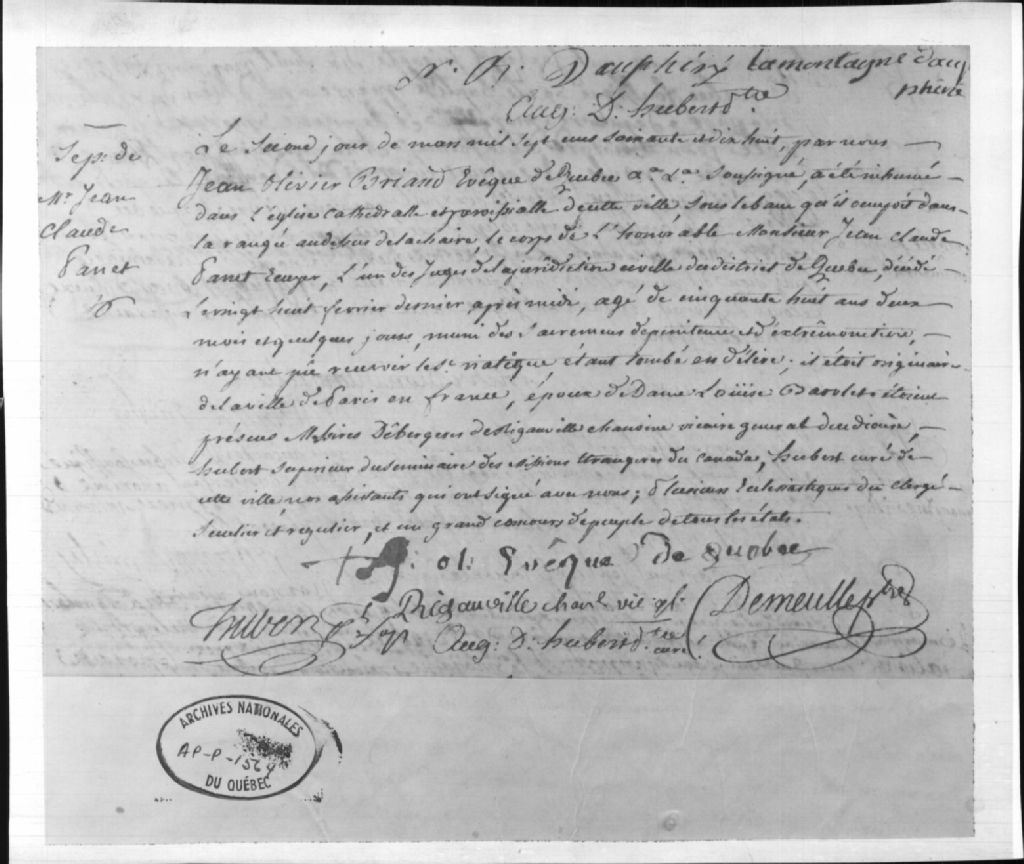 Dauphiné Lamontagne daup
phiné
Aug: D: hubert
Sep: de
Mr Jean
Claude
Panet
Le second jour de mars mil sept cens soixante et dix huit, par nous
Jean Olivier Briand Evêque de Quebec soussigné, a été inhumé
dans l'église cathedralle et paroissialle de cette ville sous le banc qu'il occupoit dans
la rangé au dessus de la chaire, le corps de L'honorable Monsieur Jean Claude
Panet Ecuyer, L'un des Juges de la jurisdiction civille du district de Quebec, décédé
Le vingt huit fevrier dernier après midi, agé de cinquante huit ans deux
mois et quelques jours, muni des sacremens de penitence et d'extrêmonction,
n'ayant pû recevoir le St viatique, étant tombé en délire; il étoit originaire
de la ville de Paris en france, époux de Dame Loüise Barolet; étoient
présens Messires Débergeres de Rigauville chanoine vicaire general du diocèse,
hubert Superieur du Seminaire des Missions étrangeres du Canada, hubert curé de
cette ville nos assistants qui ont signé avec nous; Plusieurs Ecclesiastiques du Clergé
Seculier et regulier, et un grand concours de peuple de tous les états.
+ J: ol: Evêque De Quebec
hubert
Rigauville chan. vic. gl.
Demeulle ptre
Aug: D: hubert
curé
ARCHIVES NATIONALES
AP-P-1569
DU QUÉBEC